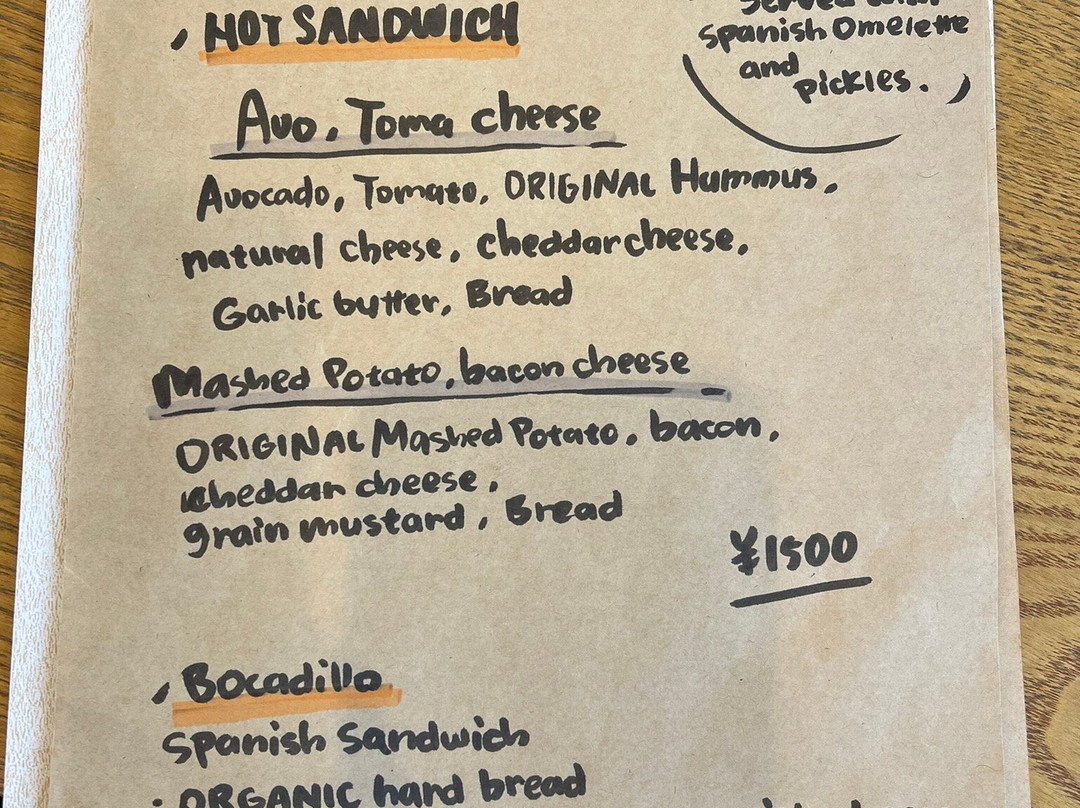 HOT SANDWICH
Spanish Omelette
and
pickles.
Avo, Toma cheese
Avocado, Tomato, ORIGINAL Hummus,
natural cheese, cheddar cheese,
Garlic butter, Bread
Mashed Potato, bacon cheese
ORIGINAL Mashed Potato, bacon,
cheddar cheese,
grain mustard, Bread
¥1500
Bocadillo
Spanish Sandwich
・ORGANIC hard bread